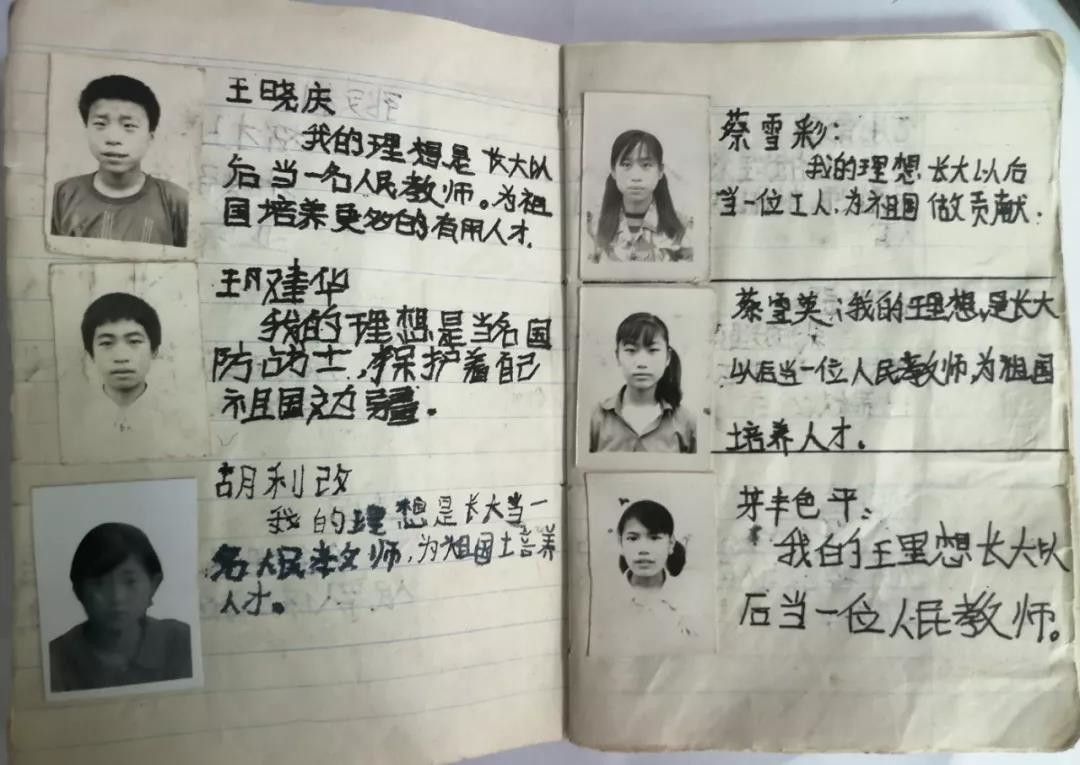 王晓庆
我的理想是长大以
后当一名人民教师。为祖
国培养更多的有用人才.
建华
我的理想是当名国
防战士,保护着自己
祖国边疆。
胡利改
我的理想是长大当一
名人民教师,为祖国培养
人才。
蔡雪彩:
我的理想长大以后
当一位工人.为祖国做贡献.
蔡雪英:我的理想,是长大
以后当一位人民教师,为祖国
培养人才。
艳平:
我的理想长大以
后当一位人民教师。